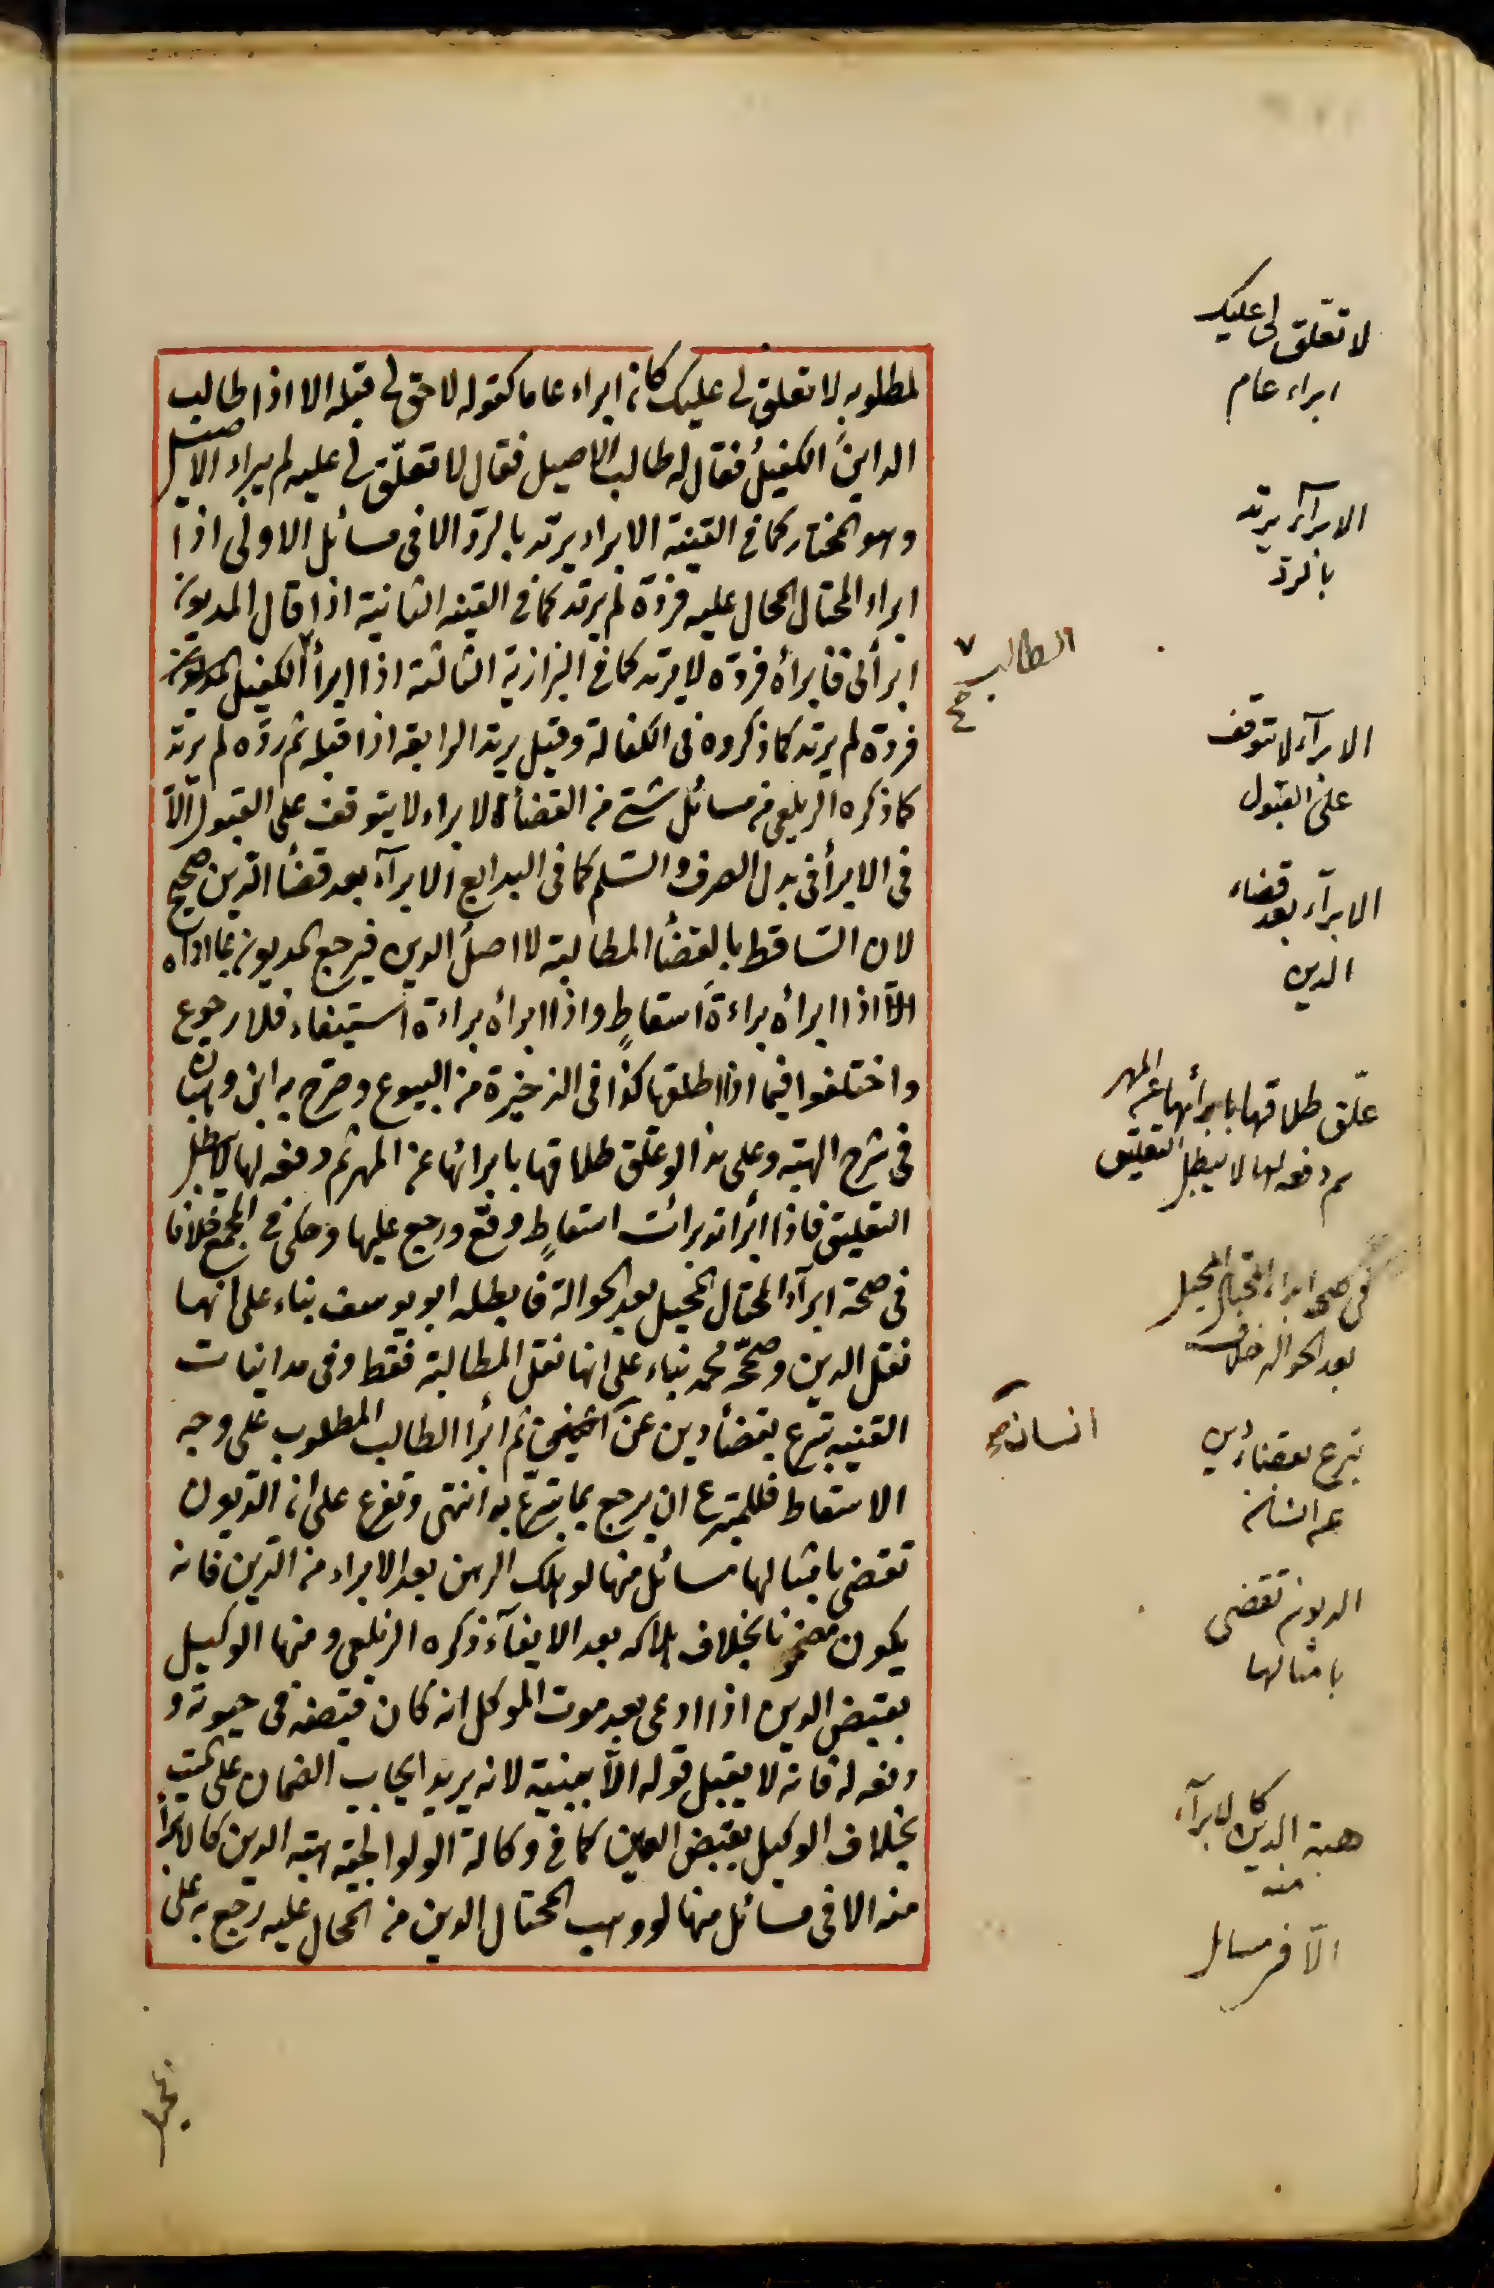 لمطلوبه لا تعلق لى عليك كان ابراء عاما كقوله لا حق لى قبله الا اذا طالب
الداين الكفيل فقال له طالب الاصيل فقال لا تعلّق لى عليه لم يبراء الاصيل
وهو المختار كما فى القنية الابراء يرتد بالردّ الا فى مسائل الاولى اذا
ابراء المحتال المحال عليه فردّه لم يرتد كما فى القنيه الثانية اذا قال المديون
ابرأنى فابرأه فردّه لا يرتد كما فى البزازية الثالثة اذا ابرأ الكفيل
فردّه لم يرتد كما ذكروه فى الكفالة وقيل يرتد الرابعة اذا قبله ثم ردّه لم يرتد
كما ذكره الزيلعى من مسائل شتى من القضأ الابراء لا يتوقف على القبول الاّ
فى الابرأ فى بدل الصرف والسّلم كما فى البدايع الابرآء بعد قضأ الدّين صحيح
لان السّاقط بالقضأ المطالبة لا اصل الدين فيرجع المديون بما ادّاه
الاّ اذا ابرأه براءة اسقاطٍ واذا ابرأه براءة استيفاء فلا رجوع
واختلفوا فيما اذا اطلقها كذا فى الذخيرة من البيوع وصرّح به ابن وهبان
فى شرح الهبه وعلى هذا لو علّق طلاقها بابرائها عن المهر ثم دفعه لها لا يبطل
التعليق فاذا ابرأته برائت اسقاطٍ وقع ورجع عليها وحكى فى المجمع خلافا
فى صحة ابرآء المحتال المحيل بعد الحوالة فابطله ابو يوسف بناء على انها
نقل الدين وصحّحه محمد بناء على انها نقل المطالبة فقط وفى مداينات
القنيه تبرّع بقضأ دين عن ثم ابرأ الطالب المطلوب على وجه
الاسقاط فللمتبرع ان يرجع بما تبرّع به انتهى وتفرع على ان الديون
تقضى بامثالها مسائل منها لو هلك الرهن بعد الابراء من الدّين فانه
يكون مضمونا بخلاف هلاكه بعد الايفآء ذكره الزيلعى ومنها الوكيل
بقبض الدين اذا ادعى بعد موت الموكل انه كان قبضه فى حيوته و
دفعه له فانه لا يقبل قوله الاّ ببينية لانه يريد ايجاب الضمان على الميت
بخلاف الوكيل بقبض العين كما فى وكالة الولوالجيه هبة الدين كالابرأ
منه الا فى مسائل منها لو وهب المحتال الدين من المحال عليه رجع به على
لا تعلّق لى عليك
ابراء عام
الابرآء يرتد
بالرد
الطالب
الابرآء لا يتوقف
على القبول
الابرآء بعد قضاء
الدين
علّق طلاقها بابرائها عن المهر
ثم دفعه لها لا يبطل التعليق
فى صحة ابراء المحتال المحيل
بعد الحواله خلاف
انسان صح
تبرع بقضاء دين
عن انسان
الديون تقضى
بامثالها
هبة الدين كالابرآء
منه
الاّ فى مسائل